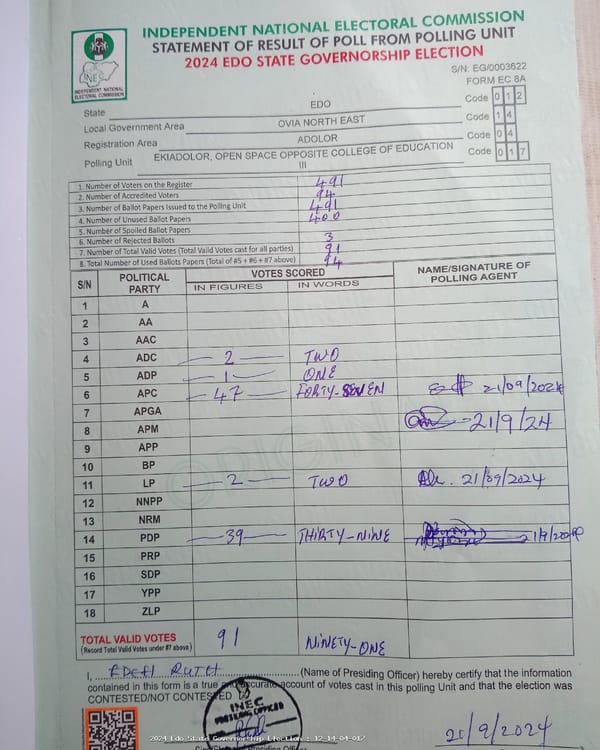 INDEPENDENT NATIONAL ELECTORAL COMMISSION
STATEMENT OF RESULT OF POLL FROM POLLING UNIT
2024 EDO STATE GOVERNORSHIP ELECTION
S/N: EG/0003622
FORM EC 8A
INEC
INDEPENDENT NATIONAL
ELECTORAL COMMISSION
State EDO Code 0 1 2
Local Government Area OVIA NORTH EAST Code 1 4
Registration Area ADOLOR Code 0 4
Polling Unit EKIADOLOR, OPEN SPACE OPPOSITE COLLEGE OF EDUCATION III Code 0 1 7
1. Number of Voters on the Register 491
2. Number of Accredited Voters 94
3. Number of Ballot Papers Issued to the Polling Unit 491
4. Number of Unused Ballot Papers 400
5. Number of Spoiled Ballot Papers
6. Number of Rejected Ballots 3
7. Number of Total Valid Votes (Total Valid Votes cast for all parties) 91
8. Total Number of Used Ballots Papers (Total of #5 + #6 + #7 above) 94
S/N POLITICAL PARTY VOTES SCORED NAME/SIGNATURE OF POLLING AGENT
IN FIGURES IN WORDS
1 A
2 AA
3 AAC
4 ADC 2 TWO
5 ADP 1 ONE
6 APC 47 FORTY-SEVEN 21/09/2024
7 APGA
8 APM 21/9/24
9 APP
10 BP
11 LP 2 TWO 21/09/2024
12 NNPP
13 NRM
14 PDP 39 THIRTY-NINE
15 PRP
16 SDP
17 YPP
18 ZLP
TOTAL VALID VOTES 91 NINETY-ONE
(Record Total Valid Votes under #7 above)
I, RUTH (Name of Presiding Officer) hereby certify that the information
contained in this form is a true and accurate account of votes cast in this polling Unit and that the election was
CONTESTED/NOT CONTESTED
INEC
21/9/2024
2024 Edo State Governorship Election : 12-14-04-017